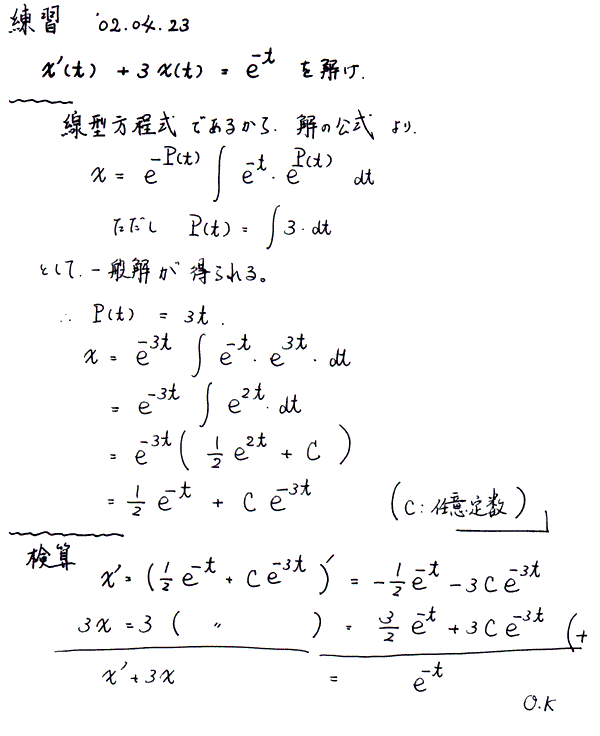 練習 '02.04.23
x'(t) + 3x(t) = e^{-t} を解け.
線型方程式であるから. 解の公式より.
x = e^{-P(t)} ∫ e^{-t}・e^{P(t)} dt
ただし P(t) = ∫ 3・dt
として. 一般解が得られる。
∴ P(t) = 3t.
x = e^{-3t} ∫ e^{-t}・e^{3t}・dt
= e^{-3t} ∫ e^{2t}・dt
= e^{-3t} ( 1/2 e^{2t} + C )
= 1/2 e^{-t} + C e^{-3t} (C: 任意定数)
検算
x' = (1/2 e^{-t} + C e^{-3t})' = -1/2 e^{-t} - 3C e^{-3t}
3x = 3 ( 〃 ) = 3/2 e^{-t} + 3C e^{-3t} (+
x' + 3x = e^{-t}
O.K